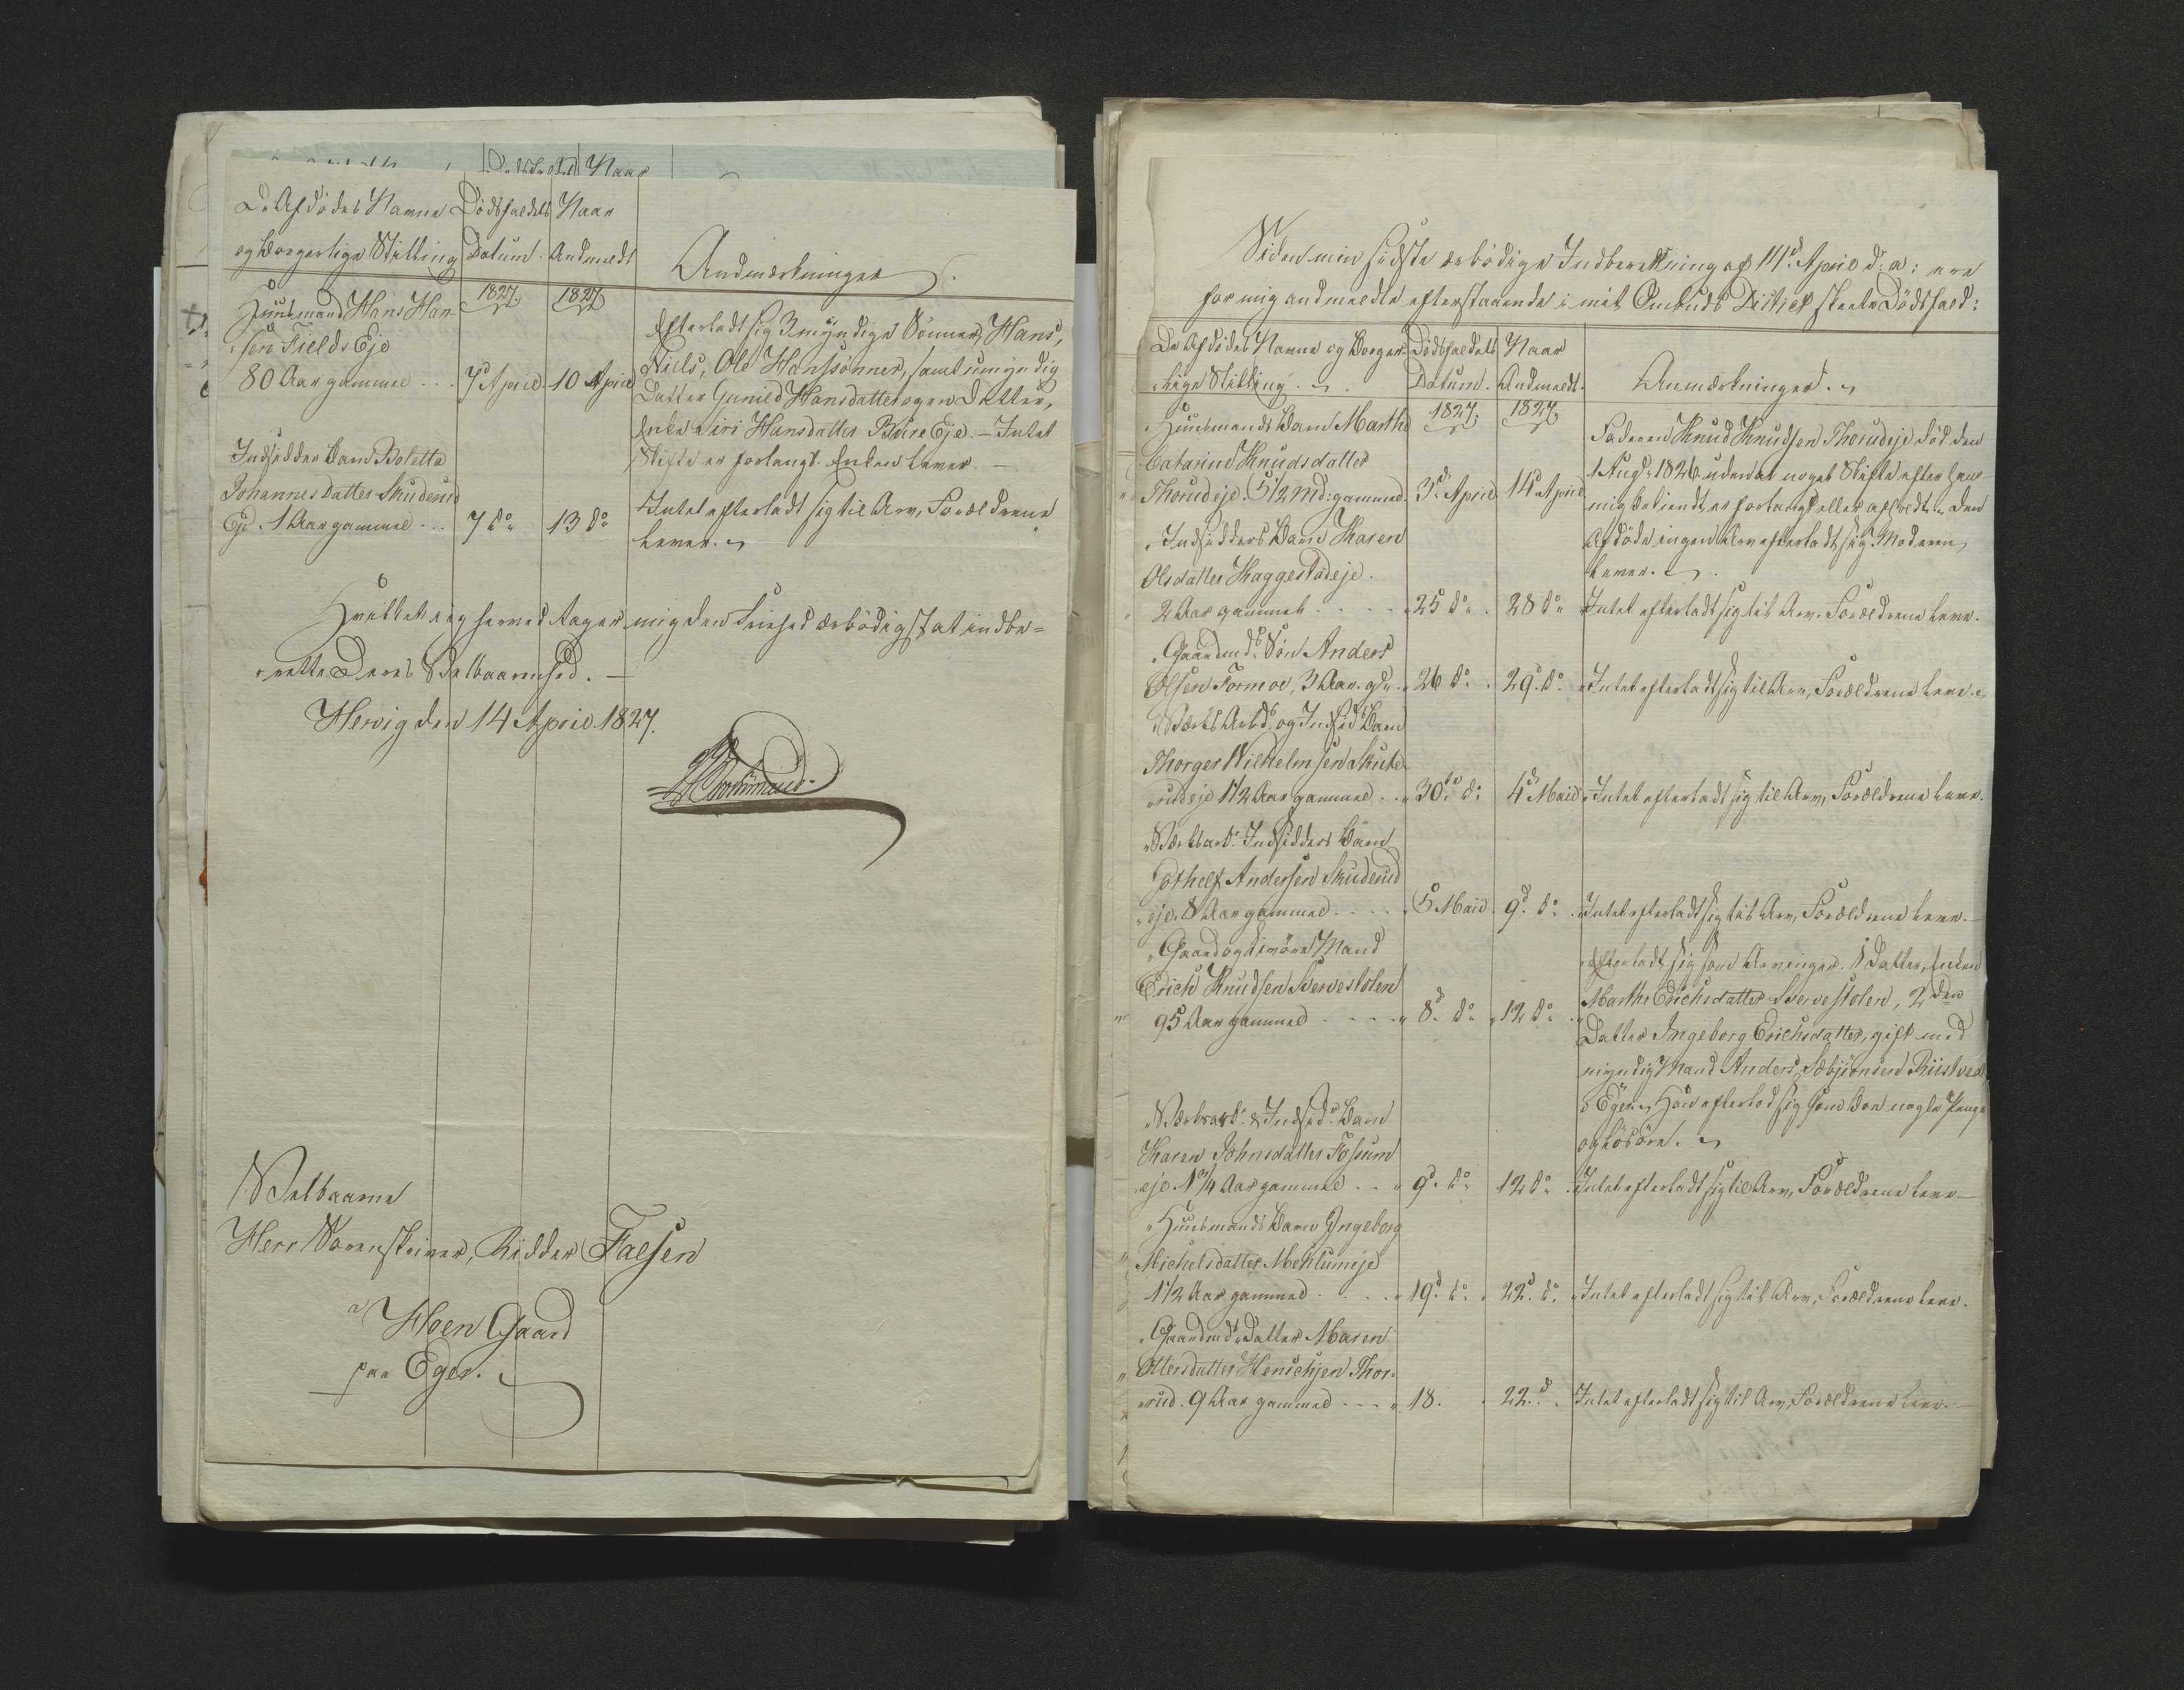 De Afdödes Navne
og borgerlige Stilling
Dödsfaldets
Datum.
Naar
Andmeldt
Andmærkninger
1827.
1827
Huusmand Hans Han-
sen Fields Eje
80 Aar gammel
7d April
10 April
Efterladt sig 3 myndige Sönner, Hans,
Niels, Ole Hanssönner, samt umyndig
Datter Gunild Hansdatter og en Datter,
Enke Siri Hansdatter Eje. – Intet
Skifte er forlangt. Enken lever. –
Indsidder Barn Boletta
Johannesdatter Skuderud
Eje 1 Aar gammel
7 do
13 do
Intet efterladt sig til Arv, Forældrene
lever.
Hvilket jeg herved tager mig den Friehed ærbödigst at indbe=
rette Deres Velbaarenhed. –
Hervig den 14 April 1827.
Velbaarne
Herr Sorenskriver, Ridder Falsen
a
Hoen Gaard
paa Eger.
Siden min sidste ærbödige Indberettning af 14d April d: a: ere
for mig andmeldte efterstaaende i mit Ombuds District skeete Dödsfald:
De Afdödes Navne og borger-
lige Stilling
Dödsfaldets
Datum.
Naar
Andmeldt.
Anmærkninger.
1827.
1827.
Huusmands Barn Marthe
Catarine Knudsdatter
Thorudeje. 5 1/2 Md: gammel.
3d April
14d April
Faderen Knud Knudsen Thorudeje död den
1 Augs 1826 uden at noget Skifte efter ham
mig bekiendt er forlangt eller afholdt. Den
Afdöde ingen Arv efterladt sig. Moderen
lever.
Indsidders Barn Karen
Olsdatter Haggestadeje.
2 Aar gammel
25 do
28 do
Intet efterladt sig til Arv. Forældrene leve.
Gaardmds Sön Anders
Olsen Formoe, 3 Aar. gl.
26 do
29. do
Intet efterladt sig til Arv, Forældrene leve.
Værks Arbd. og Indsids Barn
Thorger Wilhelmsen Skude-
rudeje 1 1/2 Aar gammel
30te do
4d Maii
Intet efterladt sig til Arv, Forældrene leve.
Værksarb. Indsidders Barn
Gothelf Andersen Skuderud
eje. 8 Aar gammel
5 Maii
9d do
Intet efterladt sig til Arv, Forældrene leve.
Mand
Erich Knudsen
95 Aar gammel
8d do
12 do
Efterladt sig som Arvinger. 1 Datter, Enken
Marthe Erichsdatter 2den
Datter Ingeborg Erichsdatter, gift med
myndig Mand Anders
Eger. Han efterlod sig som Bon nogle Penge
og lösöre.
Værksarb. & Indsids Barn
Karen Johnsdatter Fossum
eje 1 3/4 Aar gammel
9d do
12 do
Intet efterladt sig til Arv, Forældrene leve –
Huusmands Barn Ingeborg
Michelsdatter Mehlumeje
1 1/2 Aar gammel
19d do
22d do
Intet efterladt sig til Arv, Forældrene leve.
Gaardmds Datter Maren
Ottersdatter Thor-
rud. 9 Aar gammel
18.
22d
Intet efterladt sig til Arv, Forældrene leve. –